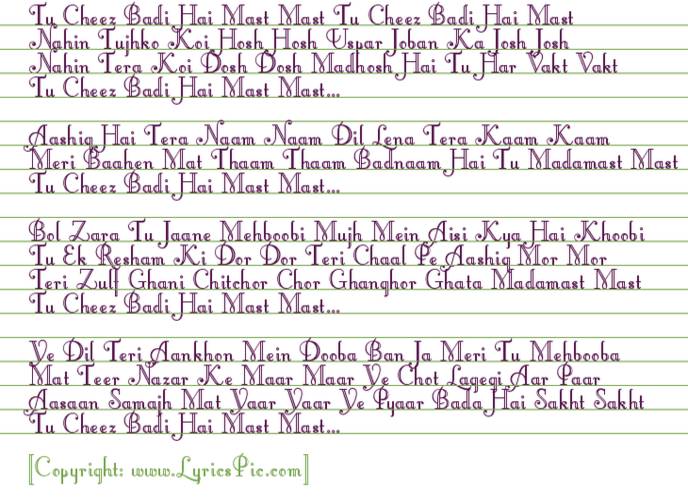 Tu Cheez Badi Hai Mast Mast Tu Cheez Badi Hai Mast
Nahin Tujhko Koi Hosh Hosh Uspar Joban Ka Josh Josh
Nahin Tera Koi Dosh Dosh Madhosh Hai Tu Har Vakt Vakt
Tu Cheez Badi Hai Mast Mast...
Aashiq Hai Tera Naam Naam Dil Lena Tera Kaam Kaam
Meri Baahen Mat Thaam Thaam Badnaam Hai Tu Madamast Mast
Tu Cheez Badi Hai Mast Mast...
Bol Zara Tu Jaane Mehboobi Mujh Mein Aisi Kya Hai Khoobi
Tu Ek Resham Ki Dor Dor Teri Chaal Pe Aashiq Mor Mor
Teri Zulf Ghani Chitchor Chor Ghanghor Ghata Madamast Mast
Tu Cheez Badi Hai Mast Mast...
Ye Dil Teri Aankhon Mein Dooba Ban Ja Meri Tu Mehbooba
Mat Teer Nazar Ke Maar Maar Ye Chot Lagegi Aar Paar
Aasaan Samajh Mat Yaar Yaar Ye Pyaar Bada Hai Sakht Sakht
Tu Cheez Badi Hai Mast Mast...
[Copyright: www.LyricsPic.com]